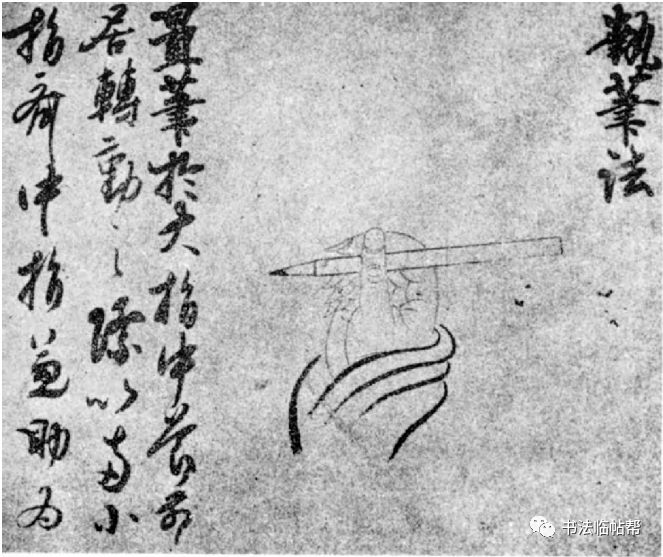 執筆法
置筆於大指中節前
居轉動之際以小
指齊中指兼助為
书法临帖帮